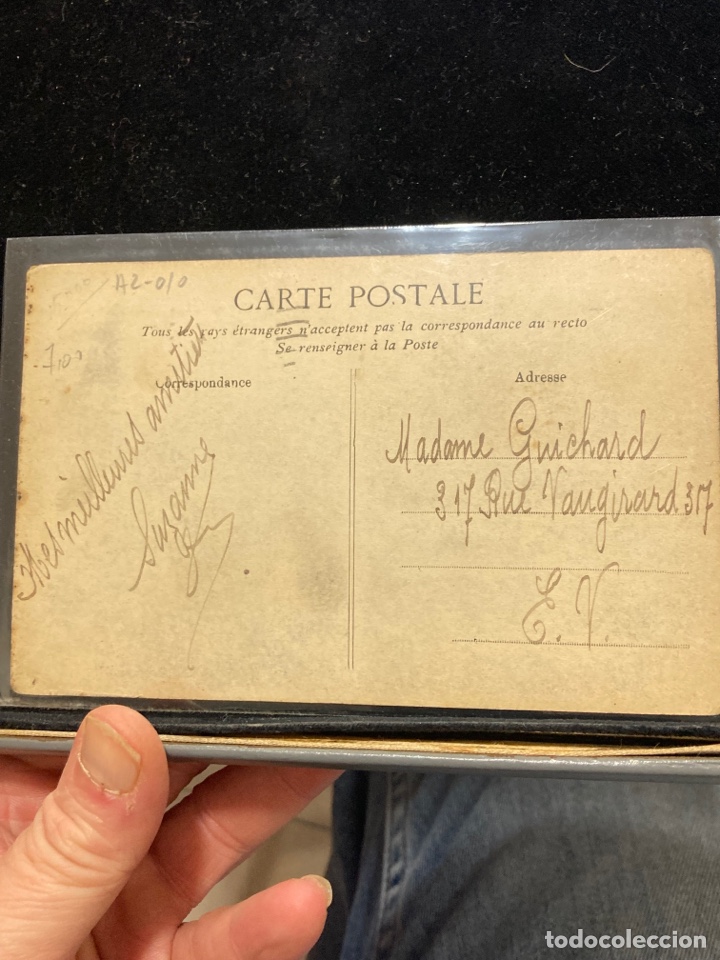 A2-010
7,00
CARTE POSTALE
Tous les pays étrangers n'acceptent pas la correspondance au recto
Se renseigner à la Poste
Correspondance
Mes meilleures amitiés
Suzanne
Adresse
Madame Guichard
317 Rue Vaugirard 317
E. V.
todocoleccion
todocoleccion.net